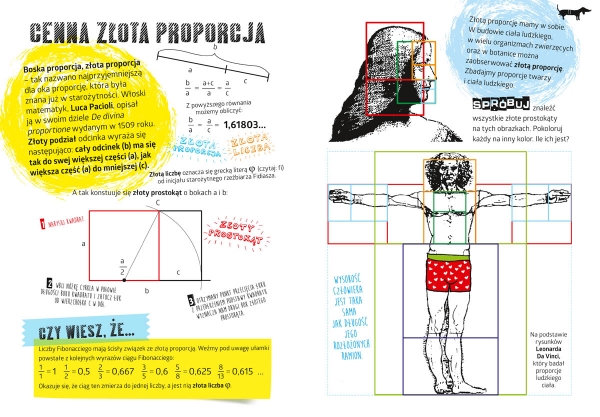 CENNA ZŁOTA PROPORCJA
Boska proporcja, złota proporcja
– tak nazwano najprzyjemniejszą
dla oka proporcję, która była
znana już w starożytności. Włoski
matematyk, Luca Pacioli, opisał
ją w swoim dziele De divina
proportione wydanym w 1509 roku.
Złoty podział odcinka wyraża się
następująco: cały odcinek (b) ma się
tak do swej większej części (a), jak
większa część (a) do mniejszej (c).
b
a
c
b/a = a+c/a = a/c
Z powyższego równania
możemy obliczyć:
b/a = a/c = 1,61803...
ZŁOTA PROPORCJA
ZŁOTA LICZBA
Złotą liczbę oznacza się grecką literą φ (czytaj: fi)
od inicjału starożytnego rzeźbiarza Fidiasza.
A tak konstruuje się złoty prostokąt o bokach a i b:
1 NARYSUJ KWADRAT.
C
a
a/2
c
b
ZŁOTY
PROSTOKĄT
2 WBIJ NÓŻKĘ CYRKLA W POŁOWIE
DŁUGOŚCI BOKU KWADRATU I ZATOCZ ŁUK
OD WIERZCHOŁKA C W DÓŁ.
3 OTRZYMANY PUNKT PRZECIĘCIA ŁUKU
Z PRZEDŁUŻENIEM PODSTAWY KWADRATU
WYZNACZA NAM DRUGI BOK ZŁOTEGO
PROSTOKĄTA.
CZY WIESZ, ŻE...
Liczby Fibonacciego mają ścisły związek ze złotą proporcją. Weźmy pod uwagę ułamki
powstałe z kolejnych wyrazów ciągu Fibonacciego:
1/1 = 1 1/2 = 0,5 2/3 = 0,667 3/5 = 0,6 5/8 = 0,625 8/13 = 0,615 ...
Okazuje się, że ciąg ten zmierza do jednej liczby, a jest nią złota liczba φ.
Złotą proporcję mamy w sobie.
W budowie ciała ludzkiego,
w wielu organizmach zwierzęcych
oraz w botanice można
zaobserwować złotą proporcję.
Zbadajmy proporcje twarzy
i ciała ludzkiego.
SPRÓBUJ znaleźć
wszystkie złote prostokąty
na tych obrazkach. Pokoloruj
każdy na inny kolor. Ile ich jest?
WYSOKOŚĆ
CZŁOWIEKA
JEST TAKA
SAMA
JAK DŁUGOŚĆ
JEGO
ROZŁOŻONYCH
RAMION.
Na podstawie
rysunków
Leonarda
Da Vinci,
który badał
proporcje
ludzkiego
ciała.